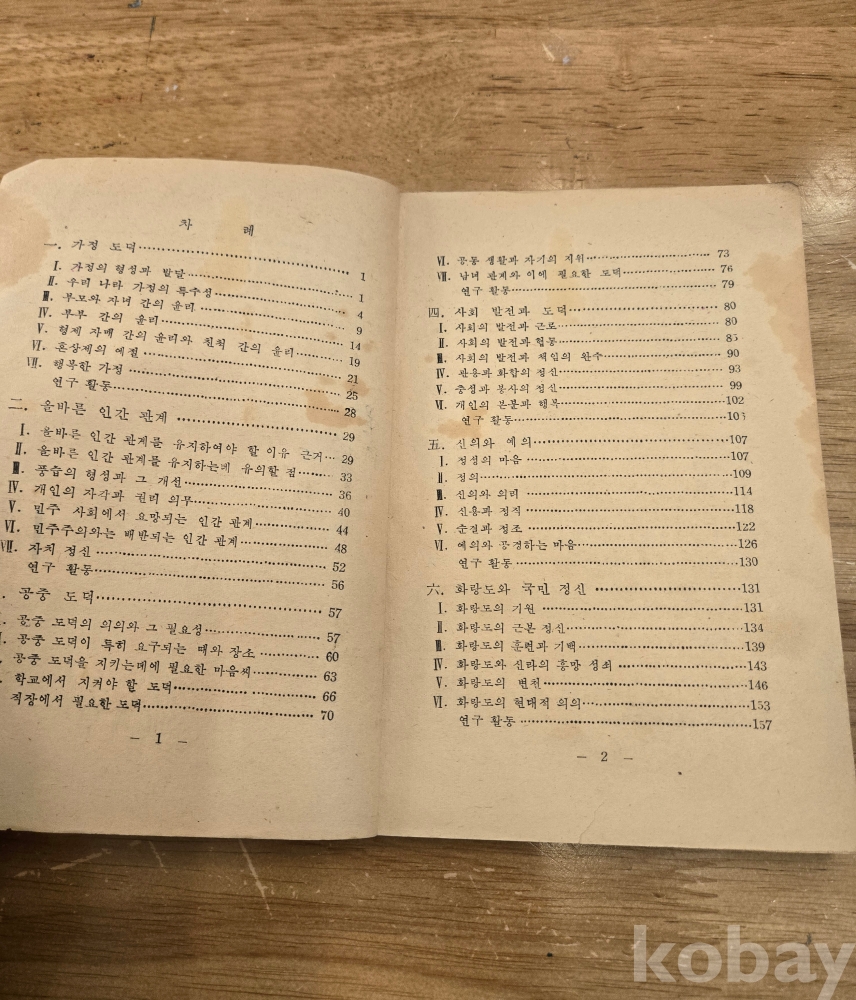 차 례
一. 가정 도덕 1
Ⅰ. 가정의 형성과 발달 1
Ⅱ. 우리 나라 가정의 특수성 4
Ⅲ. 부모와 자녀 간의 윤리 9
Ⅳ. 부부 간의 윤리 14
Ⅴ. 형제 자매 간의 윤리와 친척 간의 윤리 19
Ⅵ. 혼상제의 예절 21
Ⅶ. 행복한 가정 25
연구 활동 28
二. 올바른 인간 관계 29
Ⅰ. 올바른 인간 관계를 유지하여야 할 이유 근거 29
Ⅱ. 올바른 인간 관계를 유지하는데 유의할 점 33
Ⅲ. 풍습의 형성과 그 개선 36
Ⅳ. 개인의 자각과 권리 의무 40
Ⅴ. 민주 사회에서 요망되는 인간 관계 44
Ⅵ. 민주주의와는 배반되는 인간 관계 48
Ⅶ. 자치 정신 52
연구 활동 56
. 공중 도덕 57
. 공중 도덕의 의의와 그 필요성 57
. 공중 도덕이 특히 요구되는 때와 장소 60
. 공중 도덕을 지키는데에 필요한 마음씨 63
. 학교에서 지켜야 할 도덕 66
직장에서 필요한 도덕 70
— 1 —
Ⅵ. 공동 생활과 자기의 지위 73
Ⅶ. 남녀 관계와 이에 필요한 도덕 76
연구 활동 79
四. 사회 발전과 도덕 80
Ⅰ. 사회의 발전과 근로 80
Ⅱ. 사회의 발전과 협동 85
Ⅲ. 사회의 발전과 책임의 완수 90
Ⅳ. 관용과 화합의 정신 93
Ⅴ. 충성과 봉사의 정신 99
Ⅵ. 개인의 본분과 행복 102
연구 활동
五. 신의와 예의 107
Ⅰ. 정성의 마음 107
Ⅱ. 정의 109
Ⅲ. 신의와 의리 114
Ⅳ. 신용과 정직 118
Ⅴ. 순결과 정조 122
Ⅵ. 예의와 공경하는 마음 126
연구 활동 130
六. 화랑도와 국민 정신 131
Ⅰ. 화랑도의 기원 131
Ⅱ. 화랑도의 근본 정신 134
Ⅲ. 화랑도의 훈련과 기백 139
Ⅳ. 화랑도와 신라의 흥망 성쇠 143
Ⅴ. 화랑도의 변천 146
Ⅵ. 화랑도의 현대적 의의 153
연구 활동 157
— 2 —
kobay